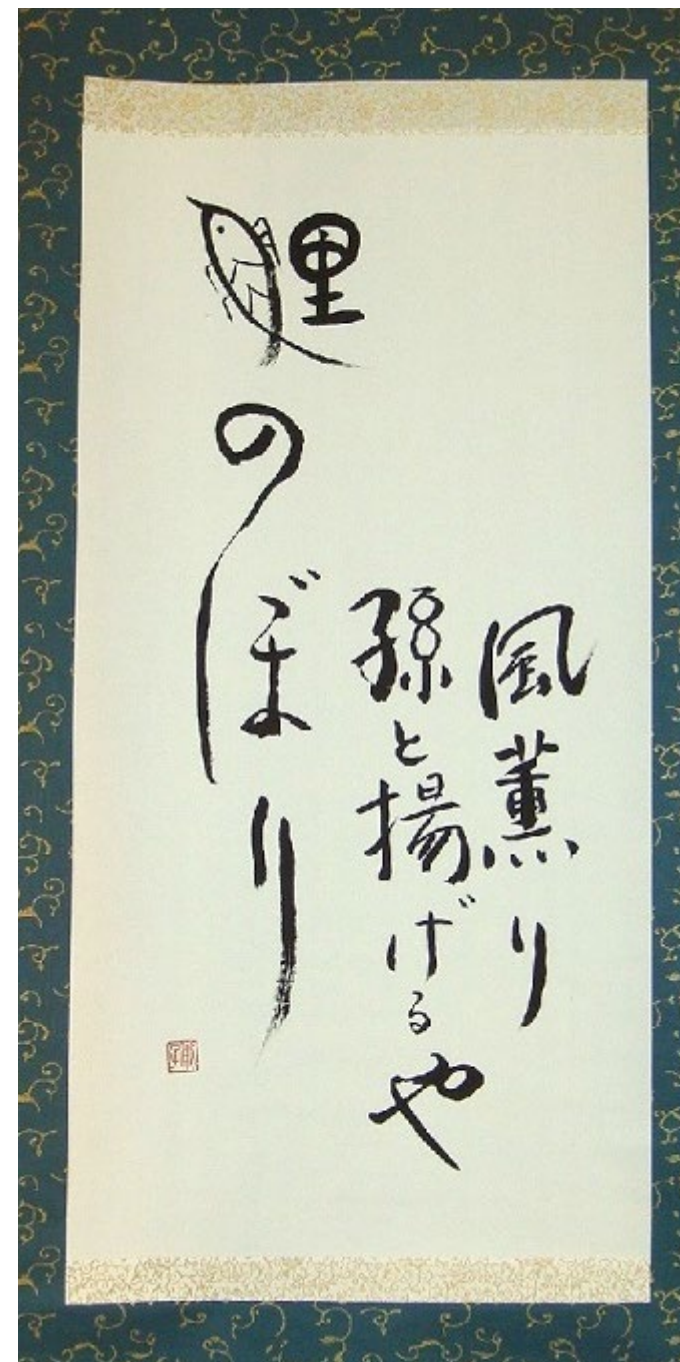 風薫り
孫と揚げるや
鯉のぼり